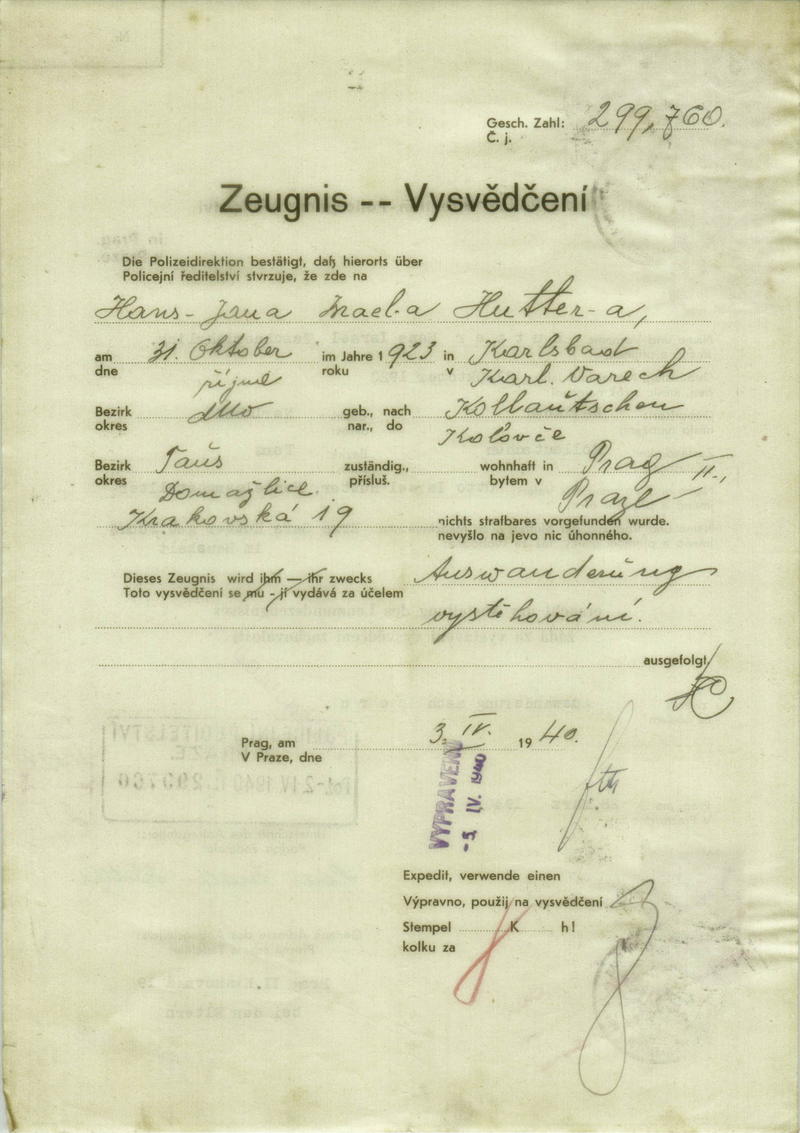 Gesch. Zahl: 299,760.
Č. j.
Zeugnis -- Vysvědčení
Die Polizeidirektion bestätigt, daß hierorts über
Policejní ředitelství stvrzuje, že zde na
Hans- Jana Israel-a Hutter-a,
am 31. Oktober im Jahre 1923 in Karlsbad
dne říjme roku v Karl. Varech
Bezirk dtto geb., nach Kollautschen
okres nar., do Kolovče
Bezirk Taus zuständig., wohnhaft in Prag II.,
okres Domažlice přísluš. bytem v Praze
Krakovská 19 nichts strafbares vorgefunden wurde.
nevyšlo na jevo nic úhonného.
Dieses Zeugnis wird ihm — ihr zwecks Auswanderung
Toto vysvědčení se mu - jí vydává za účelem
vystěhování.
ausgefolgt
Prag, am 3. IV. 1940.
V Praze, dne
VYPRAVENO
-5. IV. 1940
Expedit, verwende einen
Výpravno, použij na vysvědčení
Stempel K h!
kolku za